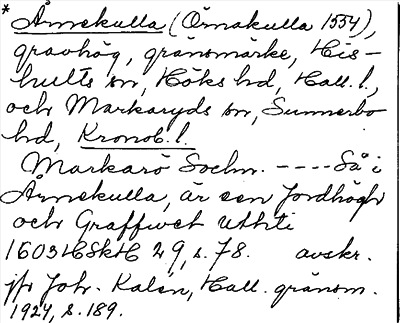 * Årnekulla (Örnakulla 1554),
gravhög, gränsmärke, His-
hults sn, Höks hd, Hall. l.,
och Markaryds sn, Sunnerbo
hd, Kronob. l.
Markarö Sochn. ---- Så i
Årnekulla, är een Jordhögh
och Graffwet uthti
1603 HSkH 29, s. 78. avskr.
jfr Joh. Kalén, Hall. gränsm.
1924, s. 189.